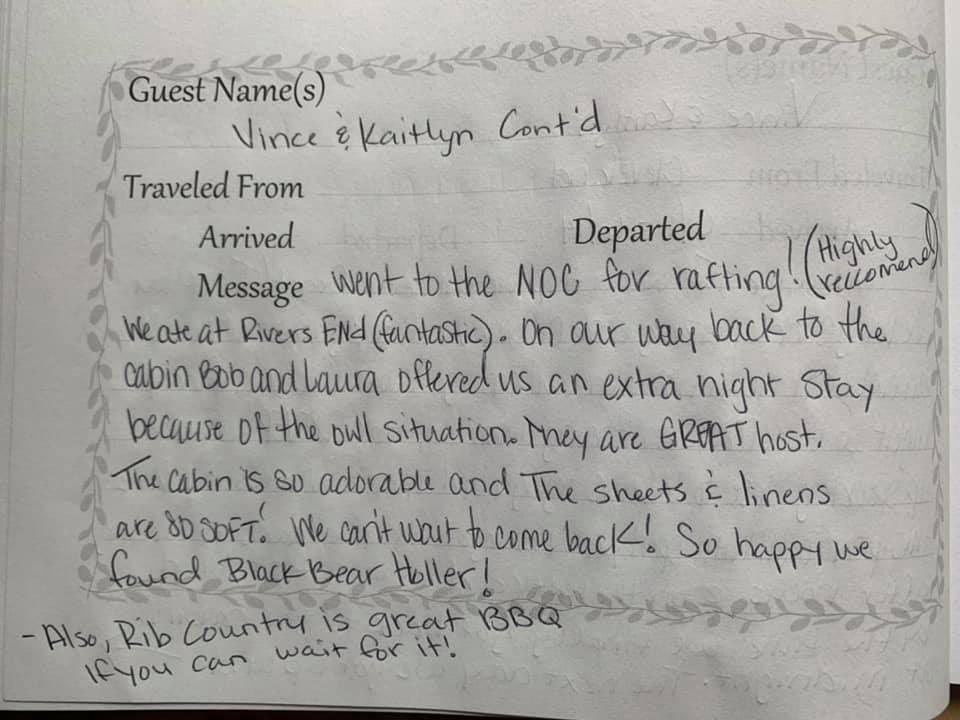 Guest Name(s)
Vince & Kaitlyn Cont'd
Traveled From
Arrived Departed
Message Went to the NOC for rafting! (Highly reccomend)
We ate at Rivers End (fantastic). On our way back to the
cabin Bob and Laura offered us an extra night stay
because of the owl situation. They are GREAT host.
The cabin is so adorable and The sheets & linens
are SO SOFT! We can't wait to come back! So happy we
found Black Bear Holler!
- Also, Rib Country is great BBQ
If you can wait for it!